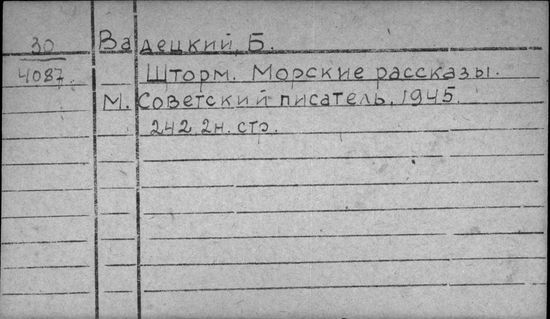 30 Вадецкий, Б.
4087. Шторм. Морские рассказы.
М. Советский писатель, 1945.
242, 2н. стр.